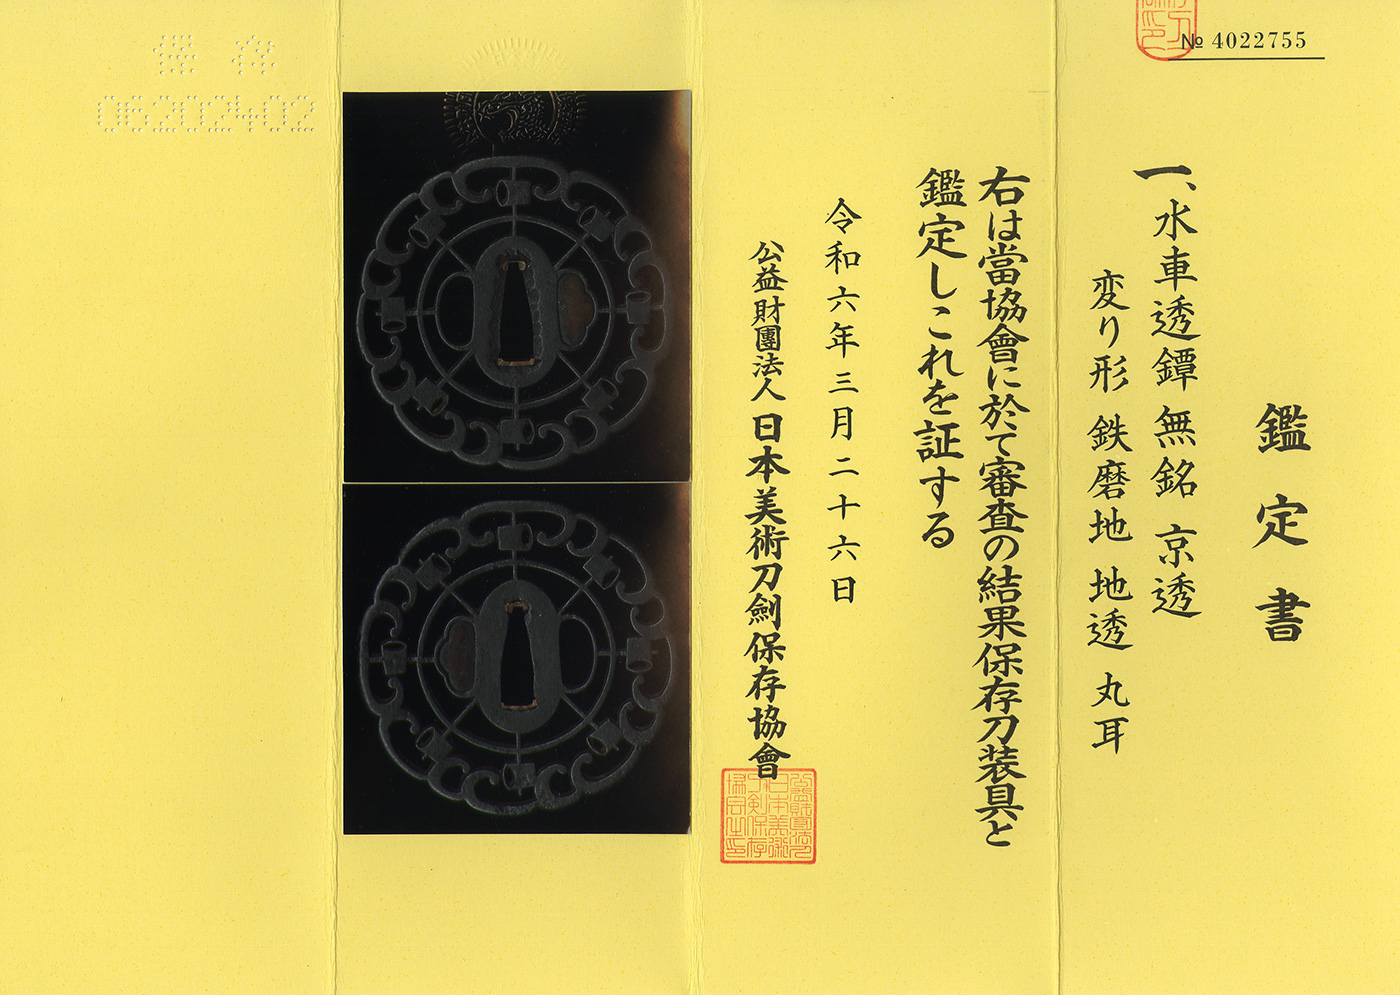 № 4022755
鑑定書
一、水車透鐔 無銘 京透
変り形 鉄磨地 地透 丸耳
右は當協會に於て審査の結果保存刀装具と
鑑定しこれを証する
令和六年三月二十六日
公益財團法人 日本美術刀劍保存協會
保存
06202402